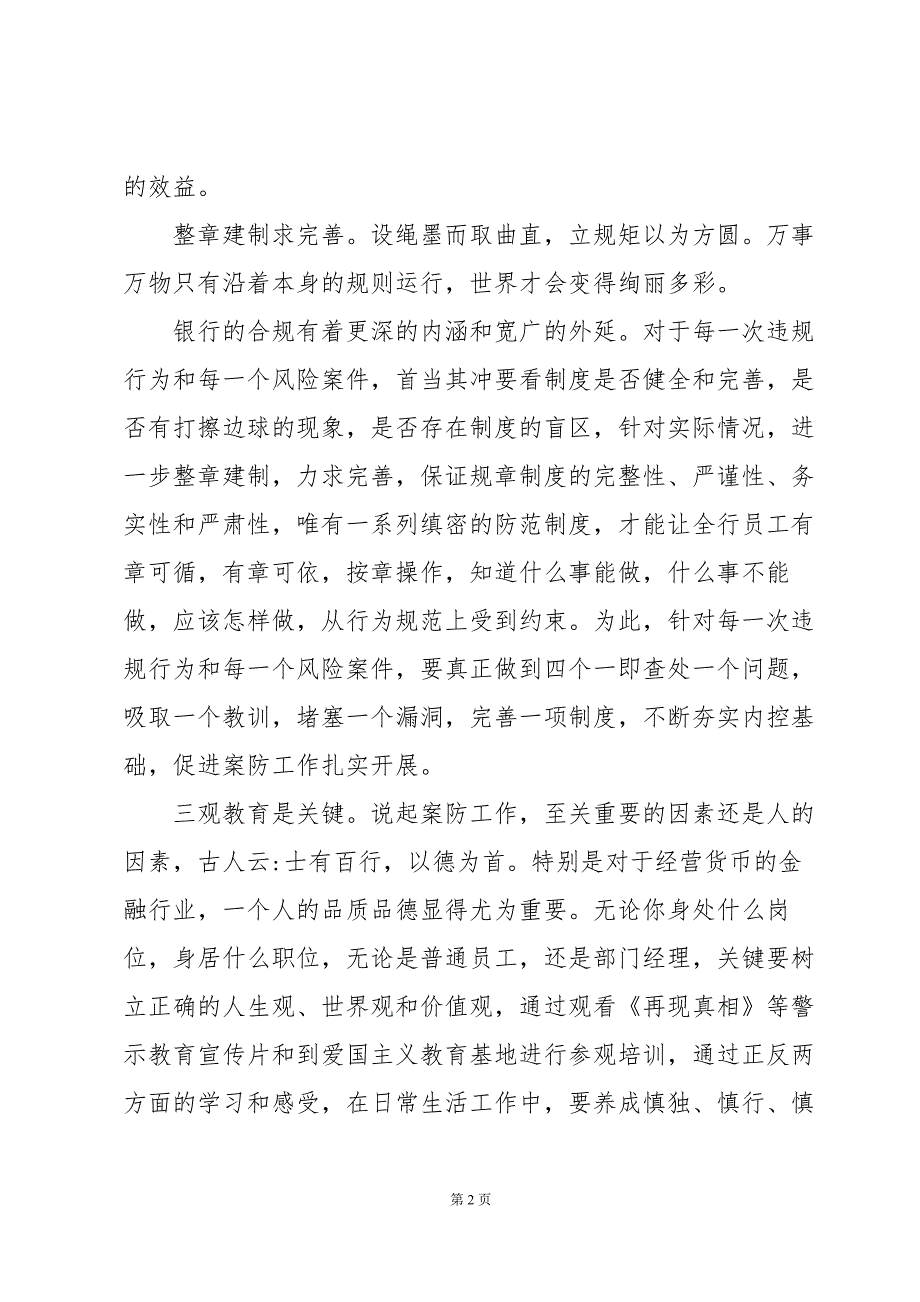 的效益。
整章建制求完善。设绳墨而取曲直，立规矩以为方圆。万事
万物只有沿着本身的规则运行，世界才会变得绚丽多彩。
银行的合规有着更深的内涵和宽广的外延。对于每一次违规
行为和每一个风险案件，首当其冲要看制度是否健全和完善，是
否有打擦边球的现象，是否存在制度的盲区，针对实际情况，进
一步整章建制，力求完善，保证规章制度的完整性、严谨性、务
实性和严肃性，唯有一系列缜密的防范制度，才能让全行员工有
章可循，有章可依，按章操作，知道什么事能做，什么事不能
做，应该怎样做，从行为规范上受到约束。为此，针对每一次违
规行为和每一个风险案件，要真正做到四个一即查处一个问题，
吸取一个教训，堵塞一个漏洞，完善一项制度，不断夯实内控基
础，促进案防工作扎实开展。
三观教育是关键。说起案防工作，至关重要的因素还是人的
因素，古人云:士有百行，以德为首。特别是对于经营货币的金
融行业，一个人的品质品德显得尤为重要。无论你身处什么岗
位，身居什么职位，无论是普通员工，还是部门经理，关键要树
立正确的人生观、世界观和价值观，通过观看《再现真相》等警
示教育宣传片和到爱国主义教育基地进行参观培训，通过正反两
方面的学习和感受，在日常生活工作中，要养成慎独、慎行、慎
第 2 页